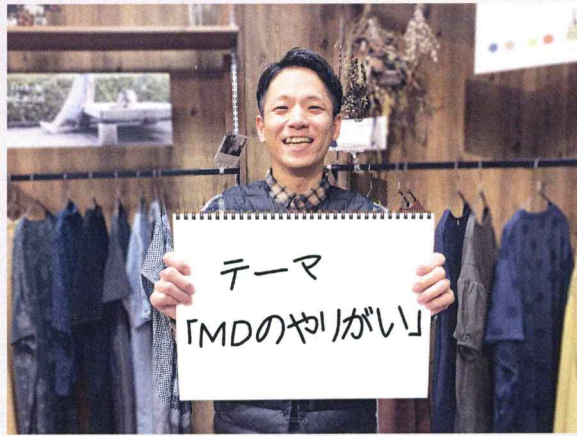 テーマ
「MDのやりがい」